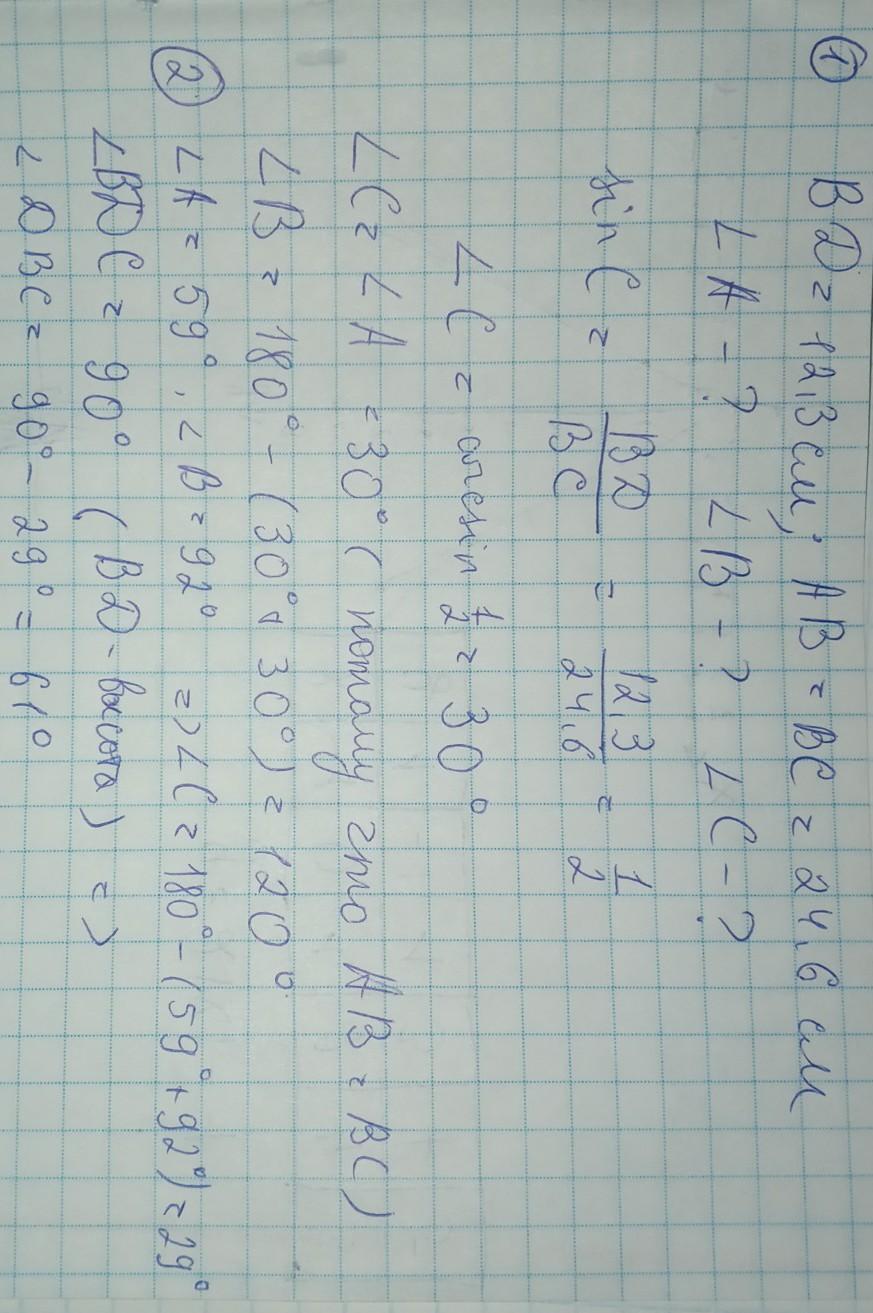 ① BD = 12,3 см; AB = BC = 24,6 см
∠A - ? ∠B - ? ∠C - ?
sin C = BD/BC = 12,3/24,6 = 1/2
∠C = arcsin 1/2 = 30°
∠C = ∠A = 30° (потому что AB = BC)
∠B = 180° - (30° + 30°) = 120°
② ∠A = 59°, ∠B = 92° => ∠C = 180° - (59° + 92°) = 29°
∠BDC = 90° (BD - высота) =>
∠DBC = 90° - 29° = 61°